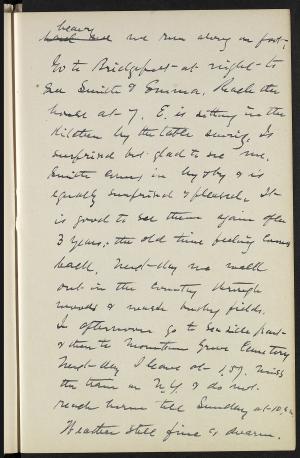 heavy
we run along on foot.
Go to Bridgeport at night to
see Smith & Emma. Reach the
house at 7. E. is sitting in the
kitchen by the table sewing. Is
surprised but glad to see me.
Smith comes in by & by & is
equally surprised & pleased. It
is good to see them again after
3 years; the old time feeling comes
back. Next day we walk
out in the country through
woods & bushy fields.
In afternoon go to Seaside park
& then to Mountain Grove Cemetery
Next day I leave at 1,57. Miss
the train in N.Y. & do not
reach home till Sunday at 10,
Weather still fine & warm.